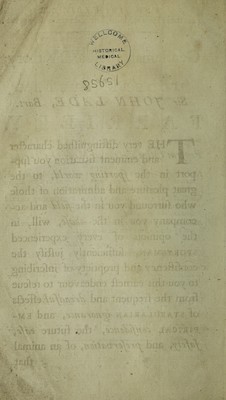 WELLCOME
HISTORICAL
MEDICAL
LIBRARY
Sir JOHN LADE, Bart.
THE very diſtinguiſhed character
and eminent ſituation you ſup-
port in the ſporting world, to the
great pleaſure and admiration of thoſe
who ſurround you in the field and ac-
company you in the chaſe, will, in
the opinion of every experienced
SPORTSMAN, ſufficiently juſtify the
conſiſtency and propriety of inſcribing
to you this earneſt endeavour to reſcue
from the frequent and dreadful effects
of STABULARIAN ignorance, and EM-
PIRICAL confidence, the future eaſe,
ſafety, and preſervation, of an animal
that